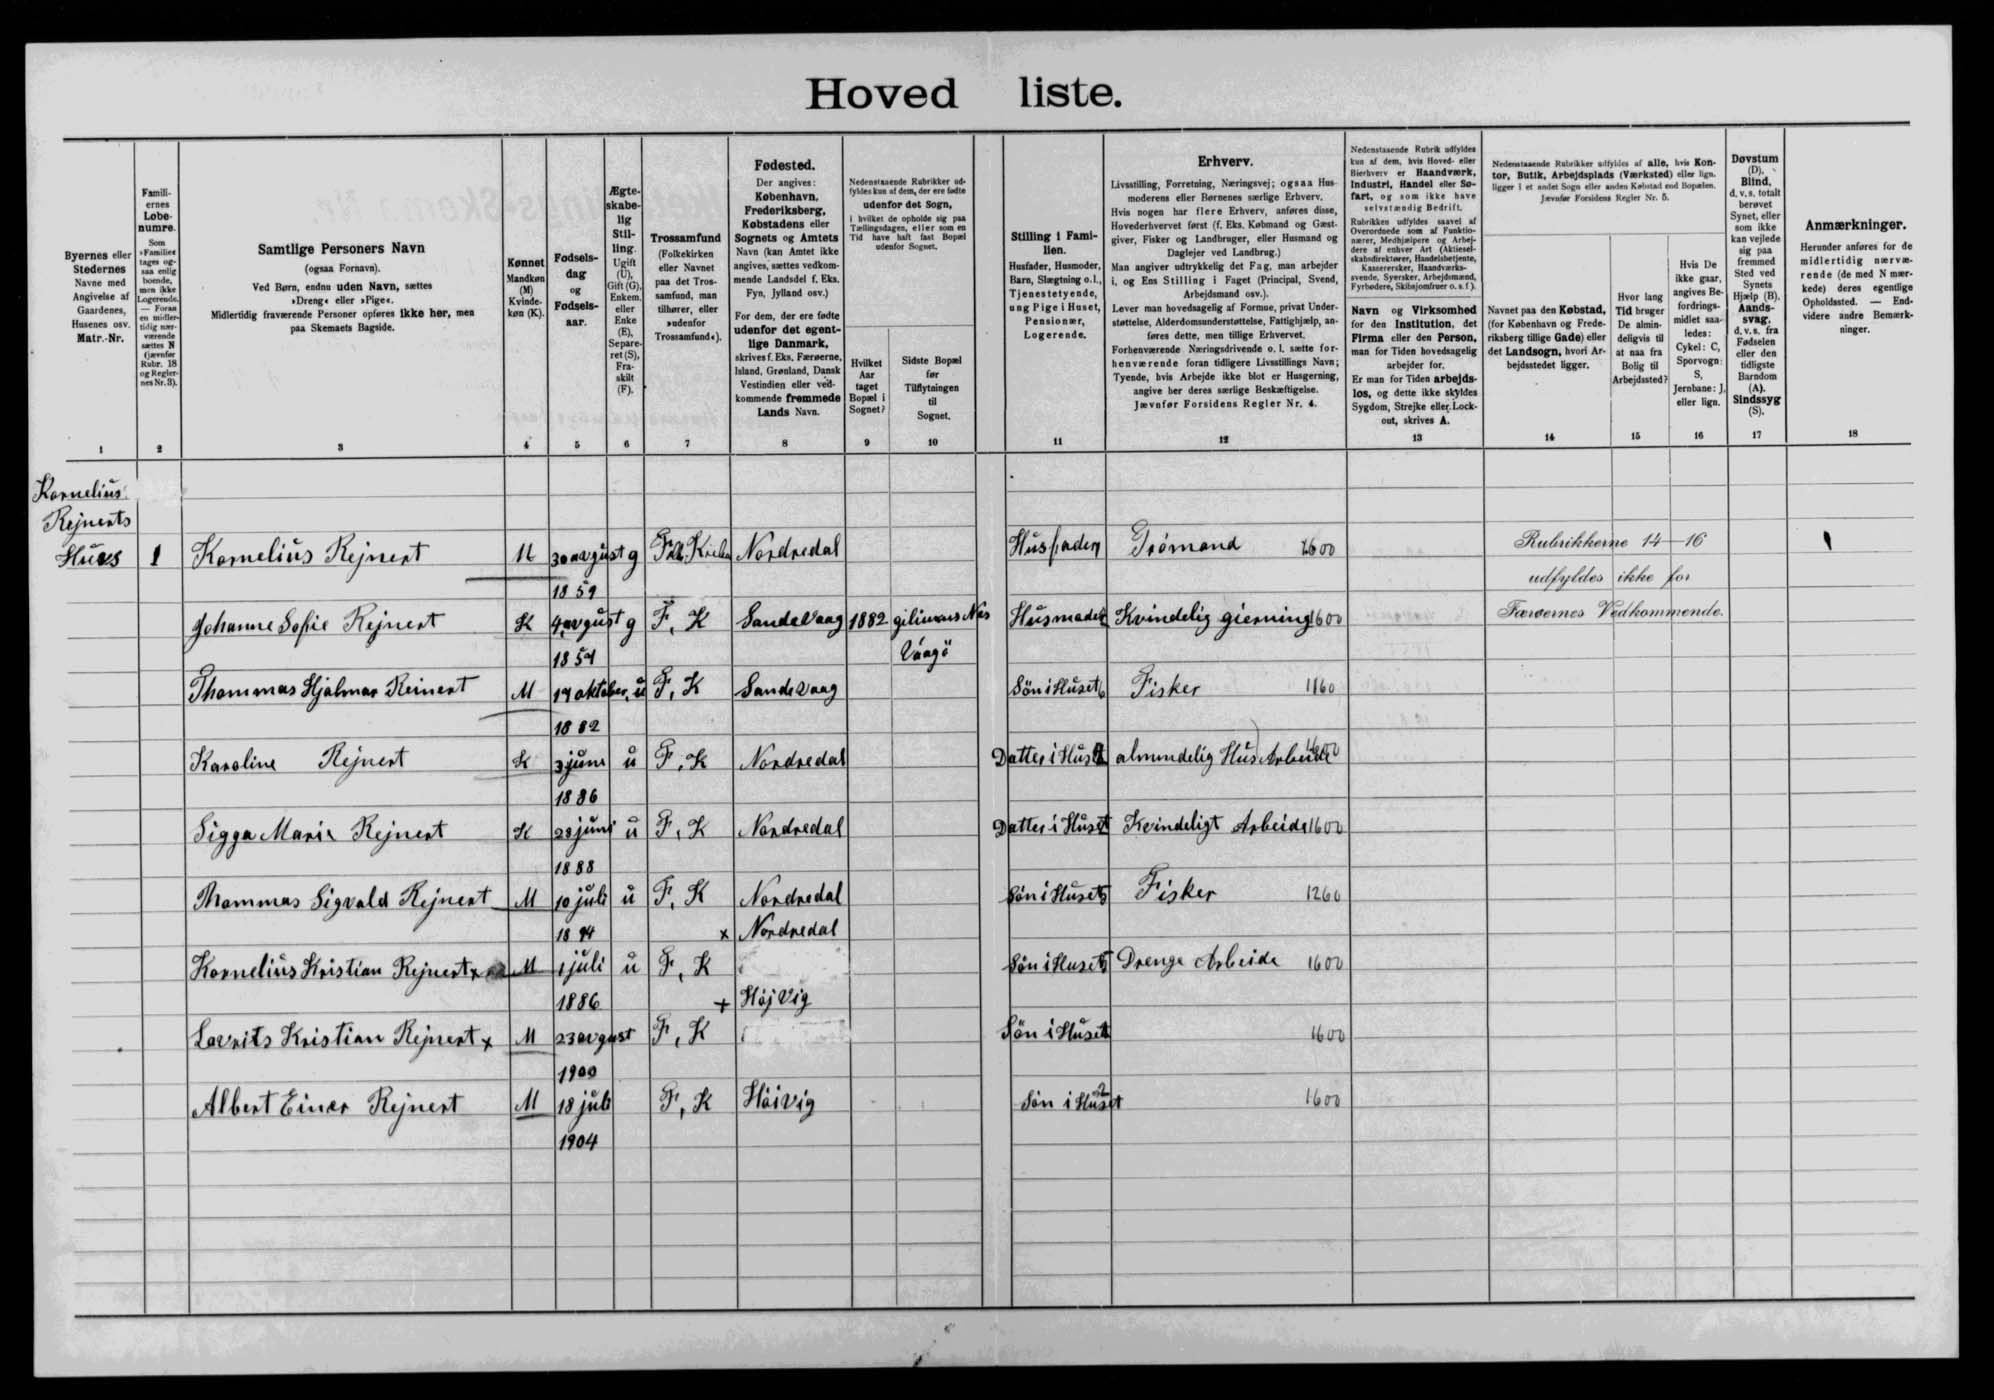 Hoved liste.
Byernes eller
Stedernes
Navne med
Angivelse af
Gaardenes,
Husenes osv.
Matr.-Nr.
1
Famili-
ernes
Løbe-
numre.
Som
»Familie«
tages og-
saa enlig
boende,
men ikke
Logerende.
— Foran
en midler-
tidig nær-
værende
sættes N
(jævnfør
Rubr. 18
og Regler-
nes Nr. 3).
2
Samtlige Personers Navn
(ogsaa Fornavn).
Ved Børn, endnu uden Navn, sættes
»Dreng« eller »Pige«.
Midlertidig fraværende Personer opføres ikke her, men
paa Skemaets Bagside.
3
Kønnet
Mandkøn
(M)
Kvinde-
køn (K).
4
Fødsels-
dag
og
Fødsels-
aar.
5
Ægte-
skabe-
lig
Stil-
ling.
Ugift
(U),
Gift (G),
Enkem.
eller
Enke
(E),
Separe-
ret (S),
Fra-
skilt
(F).
6
Trossamfund
(Folkekirken
eller Navnet
paa det Tros-
samfund, man
tilhører, eller
»udenfor
Trossamfund«).
7
Fødested.
Der angives:
København,
Frederiksberg,
Købstadens eller
Sognets og Amtets
Navn (kan Amtet ikke
angives, sættes vedkom-
mende Landsdel f. Eks.
Fyn, Jylland osv.)
For dem, der ere fødte
udenfor det egent-
lige Danmark,
skrives f. Eks. Færøerne,
Island, Grønland, Dansk
Vestindien eller ved-
kommende fremmede
Lands Navn.
8
Nedenstaaende Rubrikker ud-
fyldes kun af dem, der ere fødte
udenfor det Sogn,
i hvilket de opholde sig paa
Tællingsdagen, eller som en
Tid have haft fast Bopæl
udenfor Sognet.
Hvilket
Aar
taget
Bopæl i
Sognet?
9
Sidste Bopæl
før
Tilflytningen
til
Sognet.
10
Stilling i Fami-
lien.
Husfader, Husmoder,
Barn, Slægtning o. l.,
Tjenestetyende,
ung Pige i Huset,
Pensionær,
Logerende.
11
Erhverv.
Livsstilling, Forretning, Næringsvej; ogsaa Hus-
moderens eller Børnenes særlige Erhverv.
Hvis nogen har flere Erhverv, anføres disse,
Hovederhvervet først (f. Eks. Købmand og Gæst-
giver, Fisker og Landbruger, eller Husmand og
Daglejer ved Landbrug.)
Man angiver udtrykkelig det Fag, man arbejder
i, og Ens Stilling i Faget (Principal, Svend,
Arbejdsmand osv.).
Lever man hovedsagelig af Formue, privat Under-
støttelse, Alderdomsunderstøttelse, Fattighjælp, an-
føres dette, men tillige Erhvervet.
Forhenværende Næringsdrivende o. l. sætte for-
henværende foran tidligere Livsstillings Navn;
Tyende, hvis Arbejde ikke blot er Husgerning,
angive her deres særlige Beskæftigelse.
Jævnfør Forsidens Regler Nr. 4.
12
Nedenstaaende Rubrik udfyldes
kun af dem, hvis Hoved- eller
Bierhverv er Haandværk,
Industri, Handel eller Sø-
fart, og som ikke have
selvstændig Bedrift.
Rubrikken udfyldes saavel af
Overordnede som af Funktio-
nærer, Medhjælpere og Arbej-
dere af enhver Art (Aktiesel-
skabsdirektører, Handelsbetjente,
Kasserersker, Haandværks-
svende, Syersker, Arbejdsmænd,
Fyrbødere, Skibsjomfruer o. s. f.).
Navn og Virksomhed
for den Institution, det
Firma eller den Person,
man for Tiden hovedsagelig
arbejder for.
Er man for Tiden arbejds-
løs, og dette ikke skyldes
Sygdom, Strejke eller Lock-
out, skrives A.
13
Nedenstaaende Rubrikker udfyldes af alle, hvis Kon-
tor, Butik, Arbejdsplads (Værksted) eller lign.
ligger i et andet Sogn eller anden Købstad end Bopælen.
Jævnfør Forsidens Regler Nr. 5.
Navnet paa den Købstad,
(for København og Frede-
riksberg tillige Gade) eller
det Landsogn, hvori Ar-
bejdsstedet ligger.
14
Hvor lang
Tid bruger
De almin-
deligvis til
at naa fra
Bolig til
Arbejdssted?
15
Hvis De
ikke gaar,
angives Be-
fordrings-
midlet saa-
ledes:
Cykel: C,
Sporvogn:
S,
Jernbane: J,
eller lign.
16
Døvstum
(D),
Blind,
d. v. s. totalt
berøvet
Synet, eller
som ikke
kan vejlede
sig paa
fremmed
Sted ved
Synets
Hjælp (B).
Aands-
svag,
d. v. s. fra
Fødselen
eller den
tidligste
Barndom
(A).
Sindssyg
(S).
17
Anmærkninger.
Herunder anføres for de
midlertidig nærvæ-
rende (de med N mær-
kede) deres egentlige
Opholdssted. — End-
videre andre Bemærk-
ninger.
18
Kornelius
Rejnerts
Huus 1 Kornelius Rejnert M 30 avgust g Nordredal Husfader 1600 Rubrikkerne 14—16 1
1859 udfyldes ikke for
Johanne Sofie Rejnert K 4 avgust g F, K SandeVaag 1882 Husmoder Kvindelig gierning 1600 Færøernes Vedkommende.
1854 Vaagö
Thommas Hjalmar Reinert M 17 oktober u F, K SandeVaag Sön i Huset Fisker 1160
1882
Karoline Rejnert K 3 juni u F, K Nordredal Datter i Huset almindelig Hus Arbeide 1600
1886
Sigga Maria Rejnert K 28 juni u F, K Nordredal Datter i Huset Kvindeligt Arbeide 1600
1888
Thommas Sigvald Rejnert M 10 juli u F, K Nordredal Sön i Huset Fisker 1260
1894 x Nordredal
Kornelius Kristian Rejnert x M 1 juli u F, K Sön i Huset Drenge Arbeide 1600
1886 + Höj Vig
Lavrits Kristian Rejnert x M 23 avgust F, K Sön i Huset 1600
1900
Albert Einar Rejnert M 18 juli F, K Höivig Sön i Huset 1600
1904